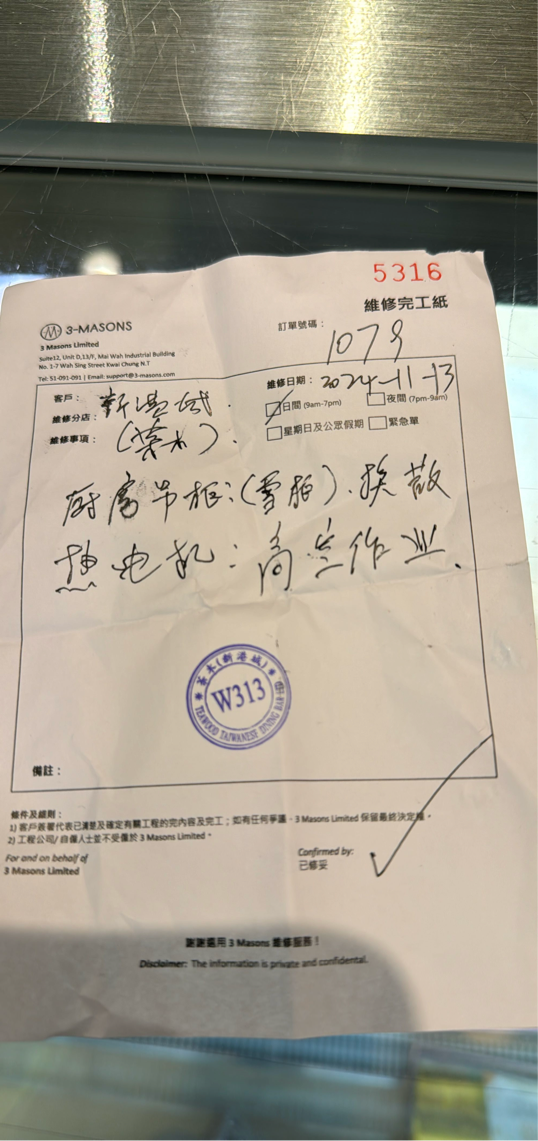 5316
維修完工紙
3-MASONS
3 Masons Limited
Suite12, Unit D,13/F, Mai Wah Industrial Building
No. 1-7 Wah Sing Street Kwai Chung N.T
Tel: 51-091-091 | Email: support@3-masons.com
訂單號碼：
1079
維修日期： 2024-11-13
日間 (9am-7pm) 夜間 (7pm-9am)
星期日及公眾假期 緊急單
客戶： 新港城
維修分店： (茶木)
維修事項：
厨房吊柜：(雪柜)．换散
热电机：高空作业．
茶木(新港城)
W313
TEAWOOD TAIWANESE DINING BAR
備註：
條件及細則：
1) 客戶簽署代表已清楚及確定有關工程的完內容及完工；如有任何爭議，3 Masons Limited 保留最終決定權。
2) 工程公司/自僱人士並不受僱於 3 Masons Limited。
For and on behalf of
3 Masons Limited
Confirmed by:
已修妥
謝謝選用 3 Masons 維修服務！
Disclaimer: The information is private and confidental.